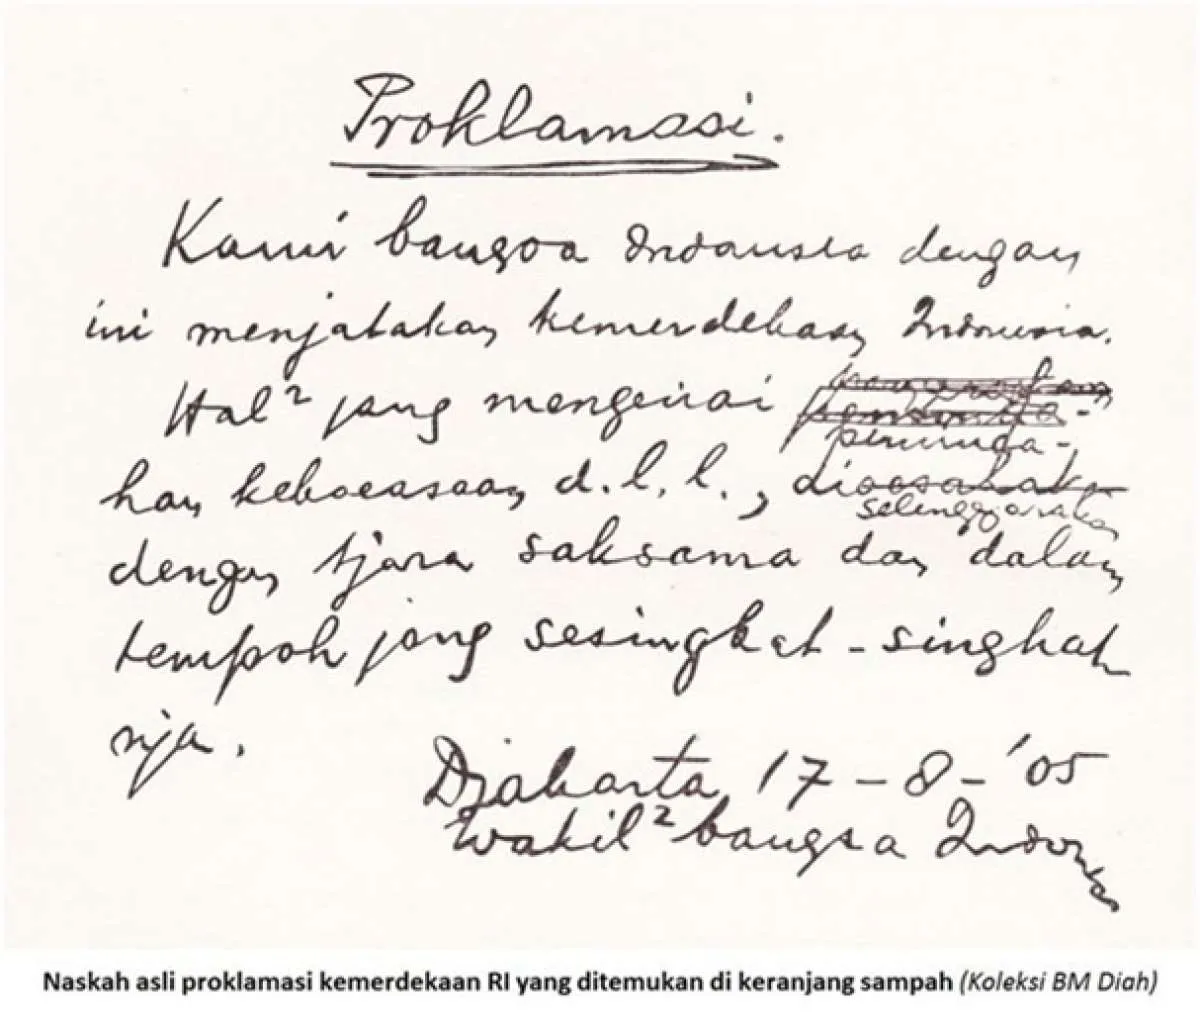 Proklamasi.
Kami bangsa Indonesia dengan
ini menjatakan kemerdekaan Indonesia.
Hal² jang mengenai
peminda-
han keboeasaan d.l.l., dioesahaka
selenggaraka
dengan tjara saksama dan dalam
tempoh jang sesingkat-singkat
nja.
Djakarta 17-8-'05
Wakil² bangsa Indonesia
Naskah asli proklamasi kemerdekaan RI yang ditemukan di keranjang sampah (Koleksi BM Diah)